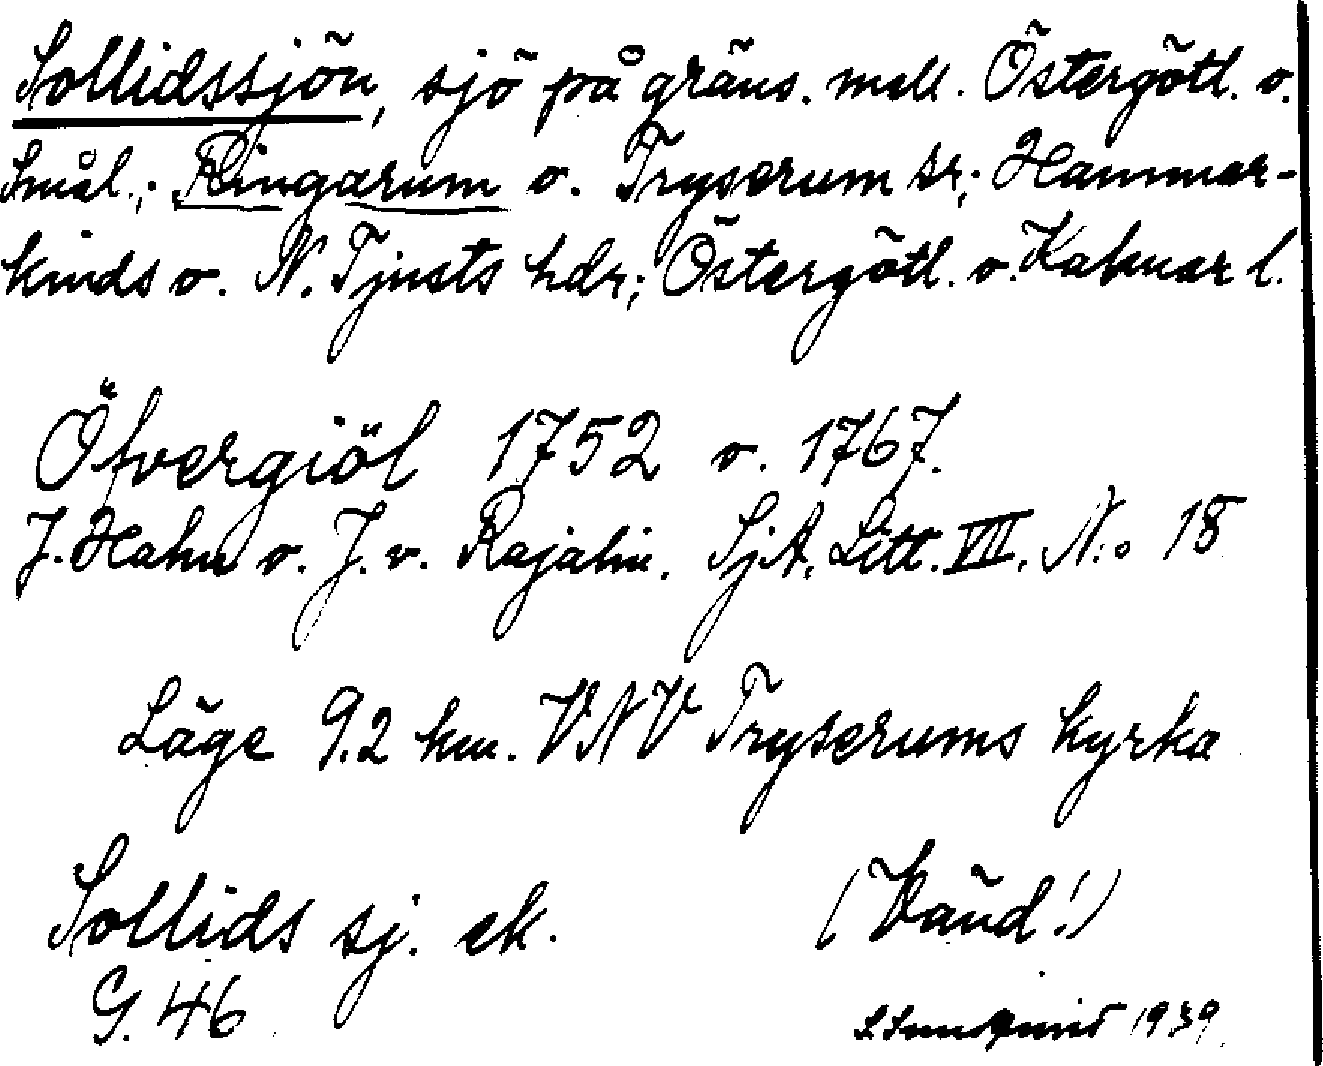 Sollidssjön, sjö på gräns. mell. Östergötl. o.
Smål.; Ringarum o. Tryserum sr; Hammar-
kinds o. N. Tjusts hdr; Östergötl. o. Kalmar l.
Öfvergiöl 1752 o. 1767.
J. Hahn o. J. v. Rajalin. SjA. Litt. VII. N:o 18
Läge 9.2 km. VNV Tryserums kyrka
Sollids sj. ek. (Vänd!)
G. 46 1939.